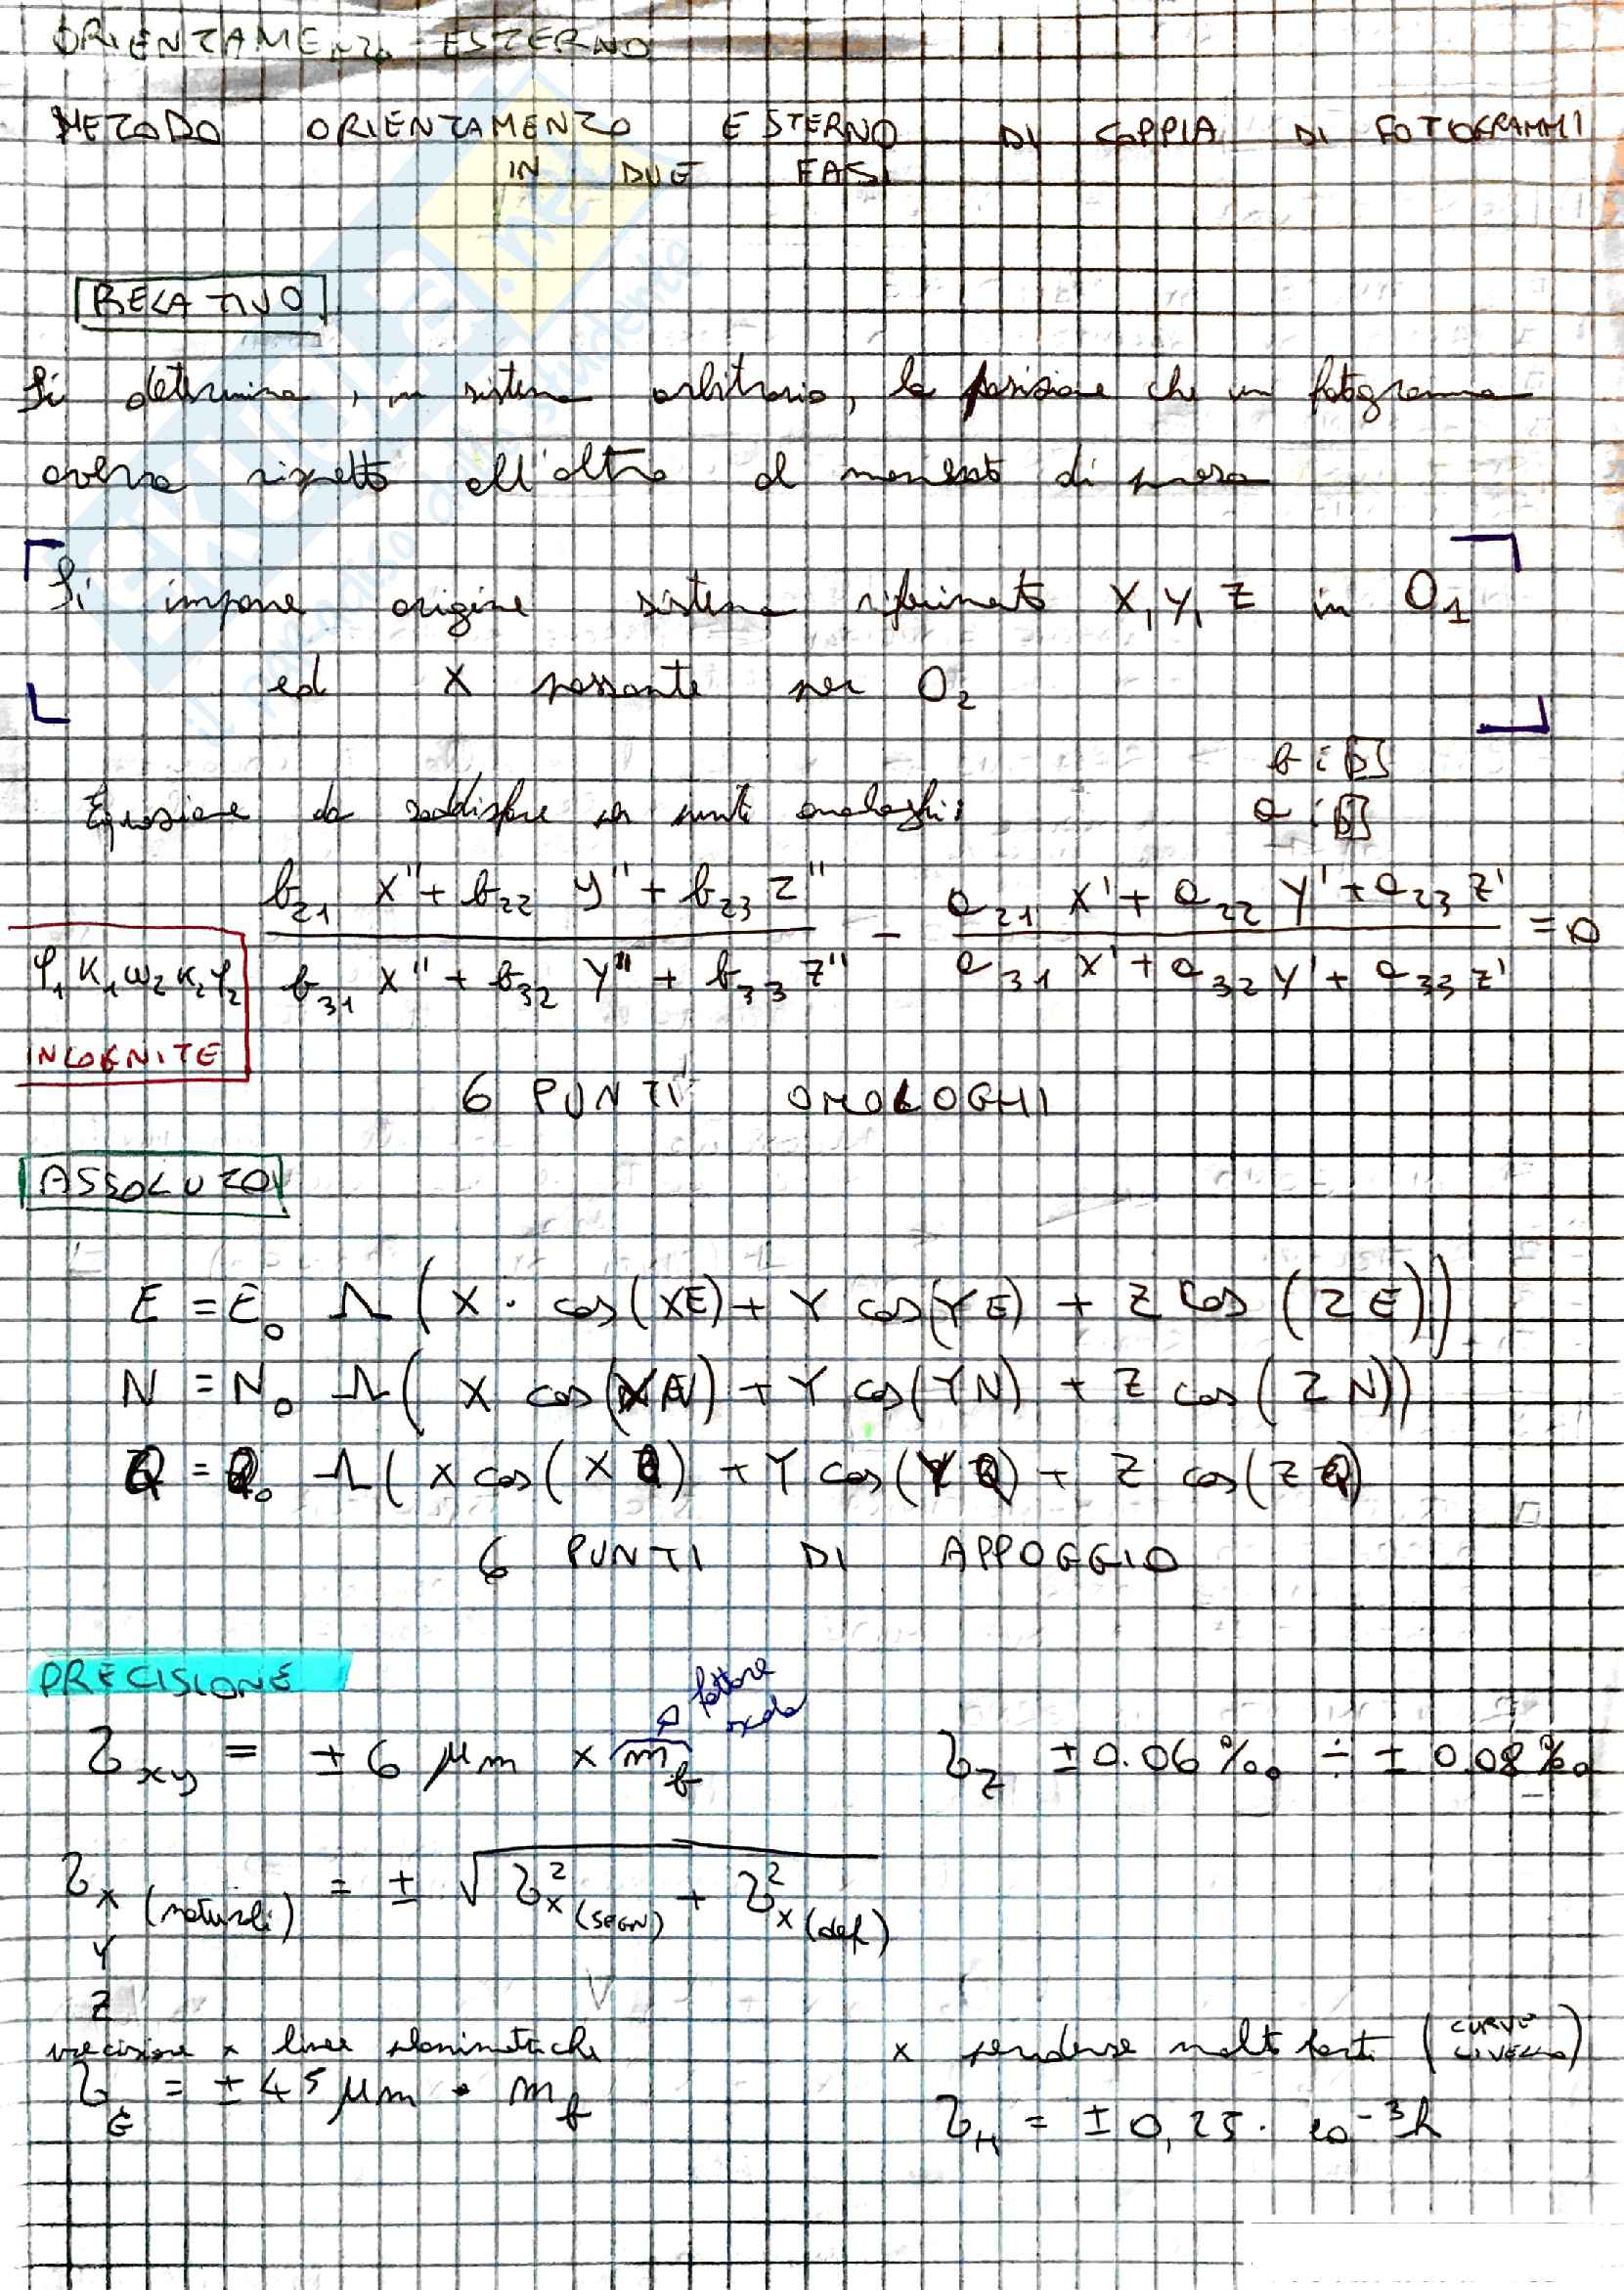 ORIENTAMENTO ESTERNO
METODO ORIENTAMENTO ESTERNO DI COPPIA DI FOTOGRAMMI
IN DUE FASI
RELATIVO
Si determina, in sistema arbitrario, la posizione che un fotogramma
aveva rispetto all'altro al momento di presa
Si impone origine sistema riferimento X, Y, Z in O₁
ed X passante per O₂
b :
a :
Equazione da soddisfare per punti omologhi:
b₂₁ x" + b₂₂ y" + b₂₃ z" / b₃₁ x" + b₃₂ y" + b₃₃ z" - a₂₁ x' + a₂₂ y' + a₂₃ z' / a₃₁ x' + a₃₂ y' + a₃₃ z' = 0
φ₁ K₁ ω₂ K₂ φ₂
INCOGNITE
6 PUNTI OMOLOGHI
ASSOLUTO
E = E₀ Λ (X · cos(XE) + Y cos(YE) + Z cos(ZE))
N = N₀ Λ (X cos(XN) + Y cos(YN) + Z cos(ZN))
Q = Q₀ Λ (X cos(XQ) + Y cos(YQ) + Z cos(ZQ)
6 PUNTI DI APPOGGIO
PRECISIONE
fattore
scala
σxy = ± 6 μm × m_b σz ± 0.06 ‰ ÷ ± 0.08 ‰
σx (naturali) = ± √ σ²x (SEGN) + σ²x (def)
Y
Z
precisione x linee planimetriche
σ = ± 45 μm · m_b
x pendenze molto forti (CURVE LIVELLO)
σH = ± 0,25 · 10⁻³ h